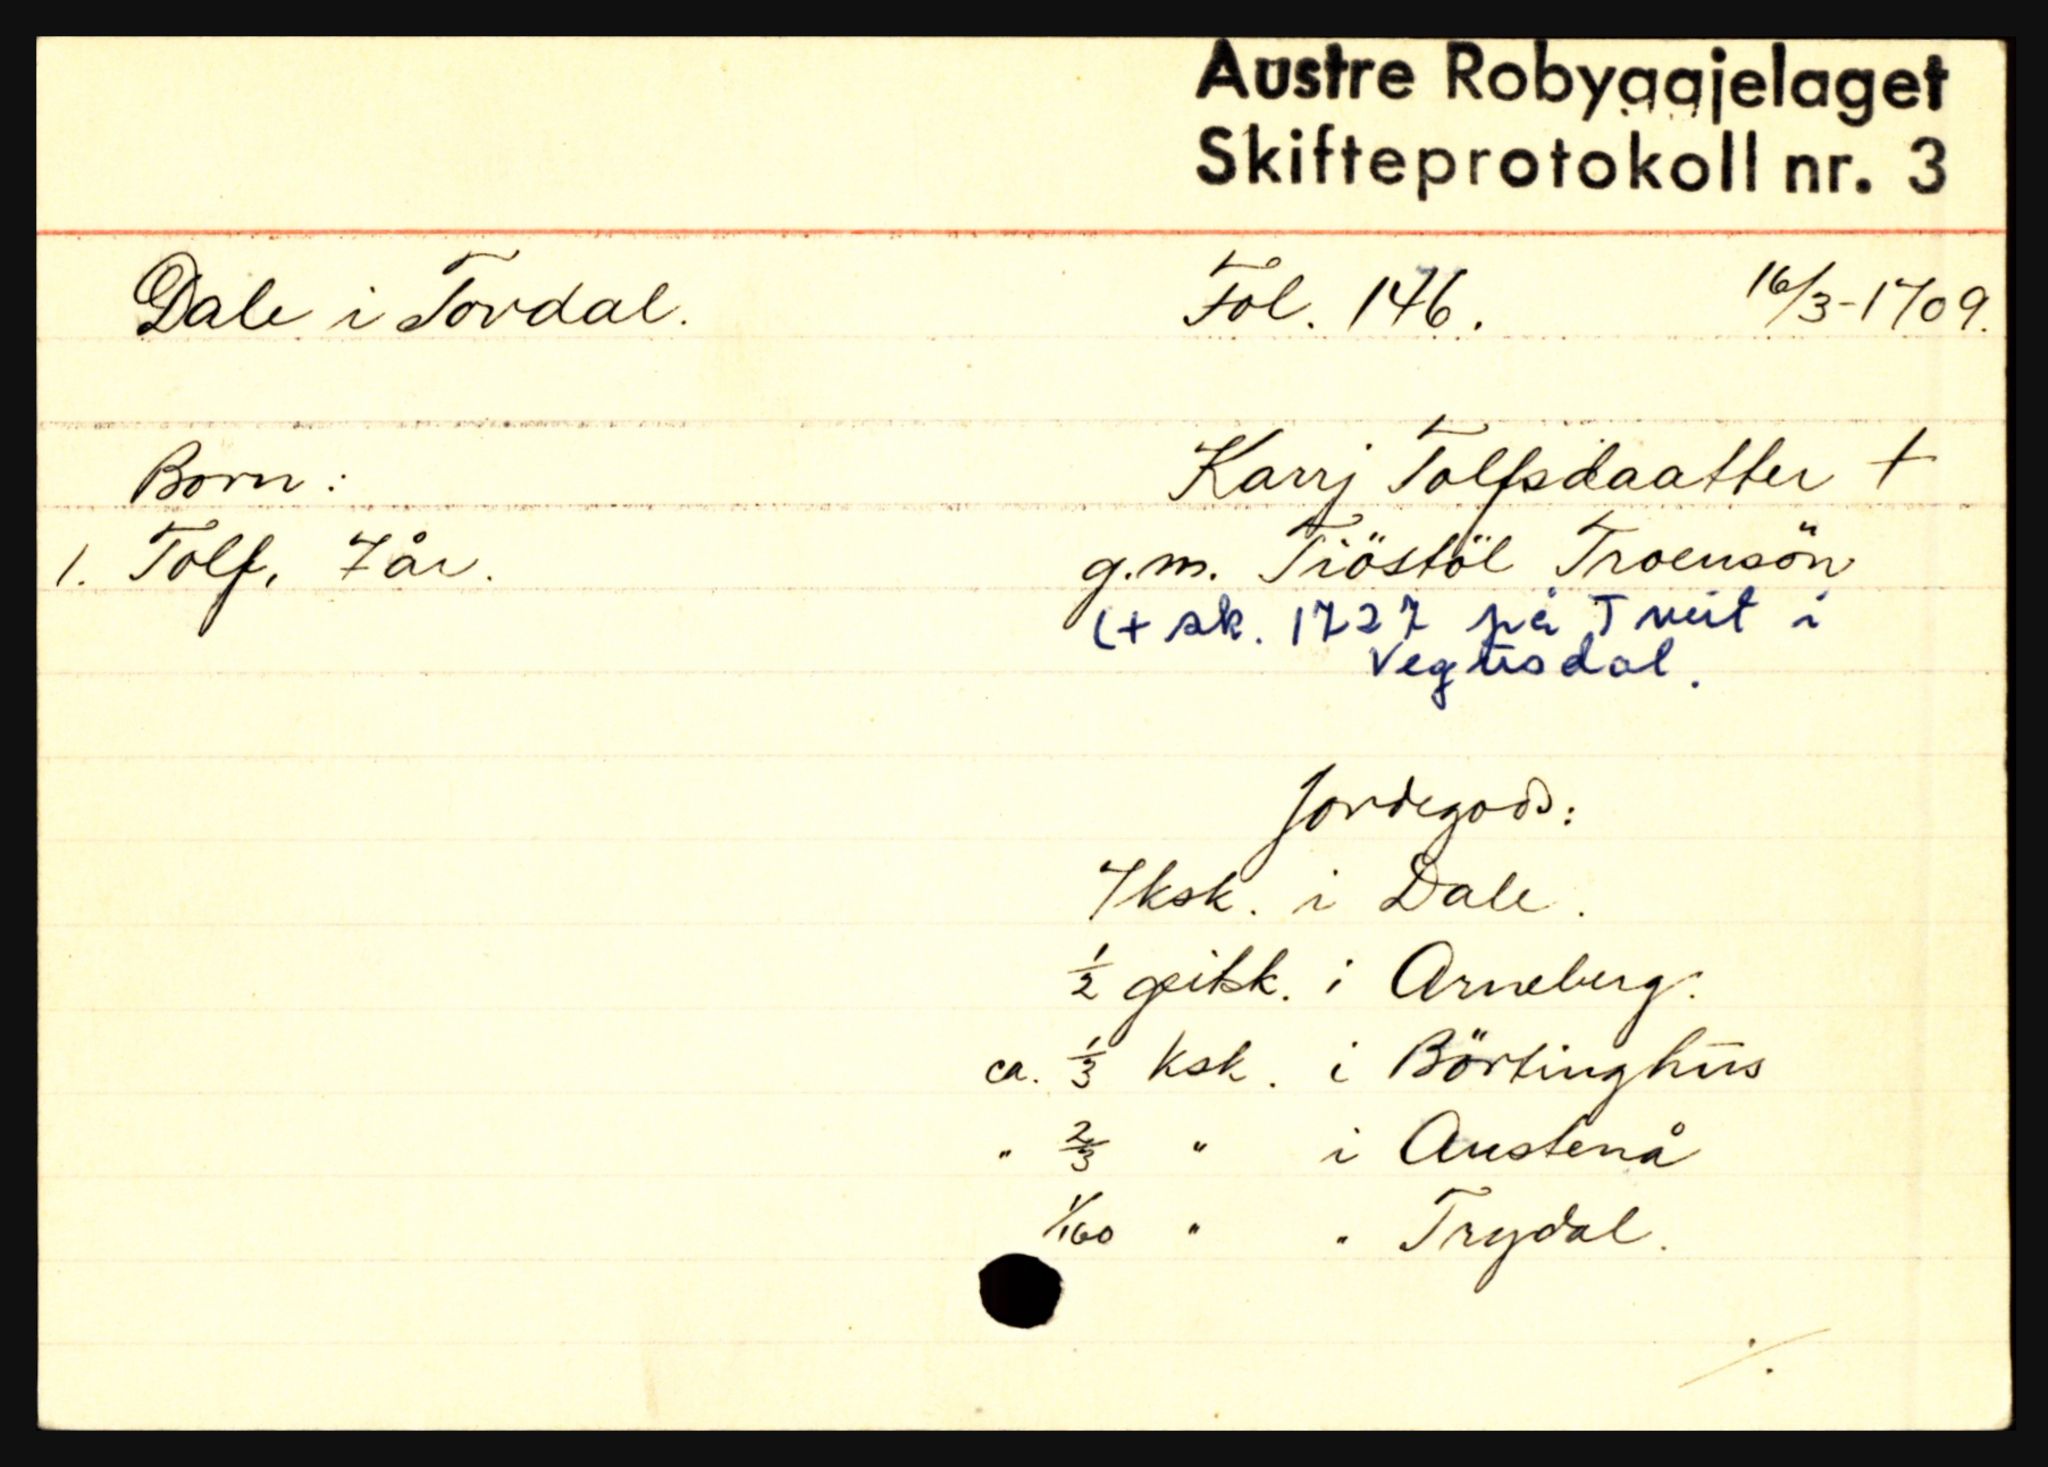 Austre Robyggjelaget
Skifteprotokoll nr. 3
Dale i Tovdal. Fol. 146. 16/3-1709.
Born: Karrj Tolfsdaatter +
1. Tolf, 7 år. g.m. Tiöstöl Troensön
(+ sk. 1727 på Tveit i
Vegusdal.
Jordegods:
7 ksk. i Dale.
1/2 geitsk. i Arneberg.
ca. 1/3 ksk. i Börtinghūs
" 2/3 " i Austenå
1/160 " " Trydal.
./.